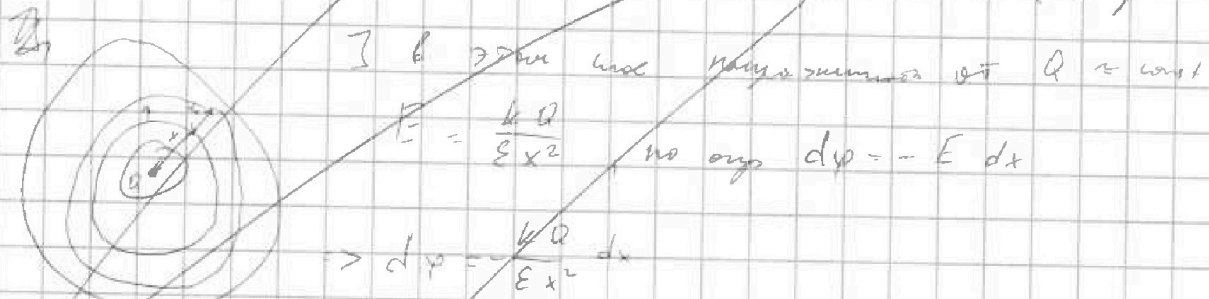 ] в этом слое напряженность от Q ≈ const
E = kQ / εx² , по опр dφ = - E dx
=> dφ = - kQ / εx² dx